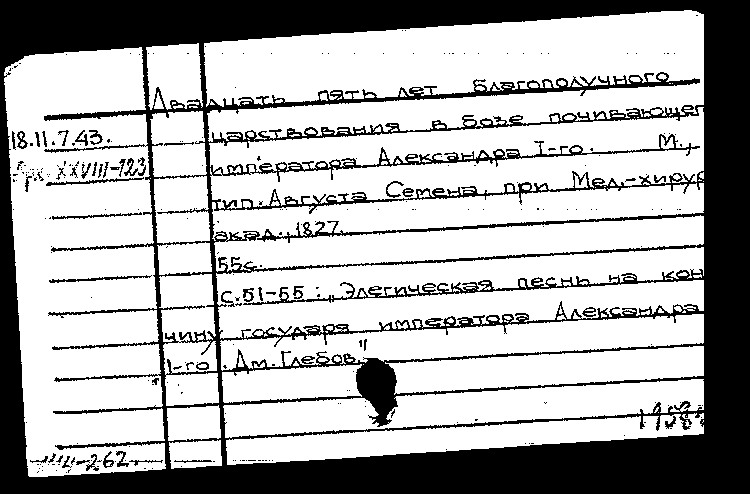 Двадцать пять лет благополучного
18.11.7.43. царствования в бозе почивающег
Арх. XXVIII-123 императора Александра I-го. М.,
тип. Августа Семена, при Мед.-хирур
акад., 1827.
55с.
с.51-55: „Элегическая песнь на кон
чину государя императора Александра
I-го. Дм. Глебов."